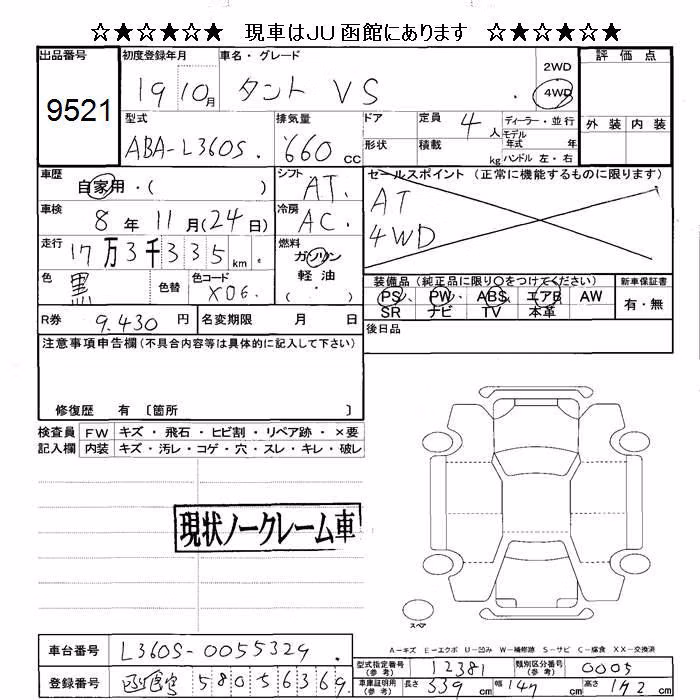 ☆★☆★☆★ 現車はJU函館にあります ☆★☆★☆★
出品番号
9521
初度登録年月
19 10月
車名・グレード
タント VS
2WD
4WD
評価点
外装 内装
型式
ABA-L360S
排気量
660 cc
ドア
形状
定員 4人
積載 kg
ディーラー・並行
モデル年式 年
ハンドル 左・右
車歴
自家用・( )
シフト
AT
セールスポイント (正常に機能するものに限ります)
AT
4WD
車検
8年 11月(24日)
冷房
AC
走行
17万3千335km
燃料
ガソリン
軽油
( )
色
黒
色替
色コード
X06
装備品(純正品に限り○をつけてください)
PS・PW・ABS・エアB AW
SR ナビ TV 本革
新車保証書
有・無
R券 9,430円
名変期限 月 日
後日品
注意事項申告欄(不具合内容等は具体的に記入して下さい)
修復歴 有 〔箇所 〕
検査員記入欄
FW キズ・飛石・ヒビ割・リペア跡・×要
内装 キズ・汚レ・コゲ・穴・スレ・キレ・破レ
現状ノークレーム車
スペア
A-キズ E-エクボ U-凹み W-補修跡 S-サビ C-腐食 XX-交換済
車台番号 L360S-0055329
登録番号 函館 580 5 6369
型式指定番号(参考) 12381
類別区分番号(参考) 0005
車庫証明用(参考) 長さ 339cm 幅 147cm 高さ 172cm